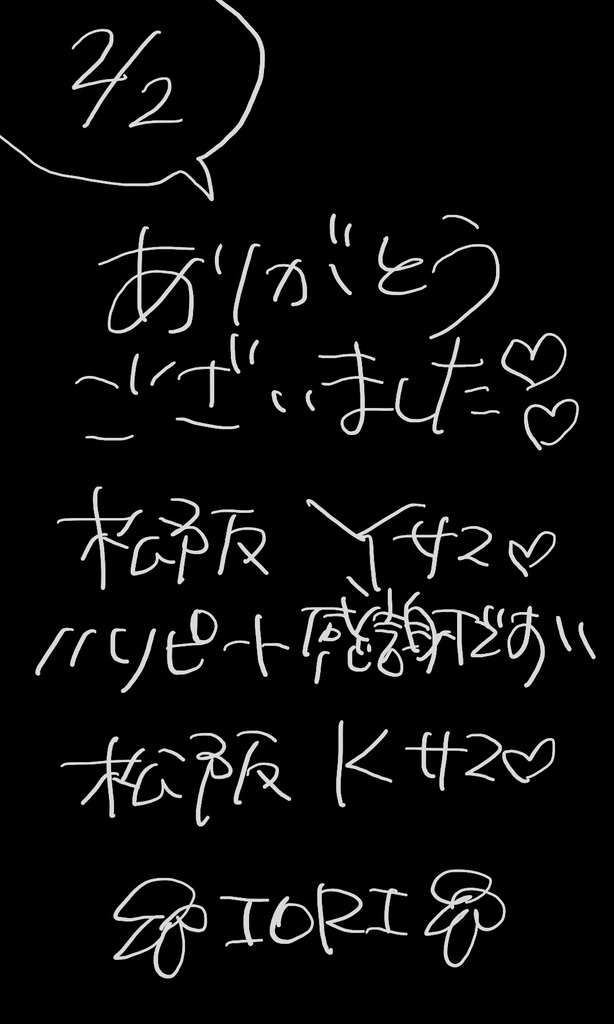 2/2
ありがとう
ございました♡♡
松阪 Yサン♡
\\リピート感謝です//
松阪 Kサン♡
IORI